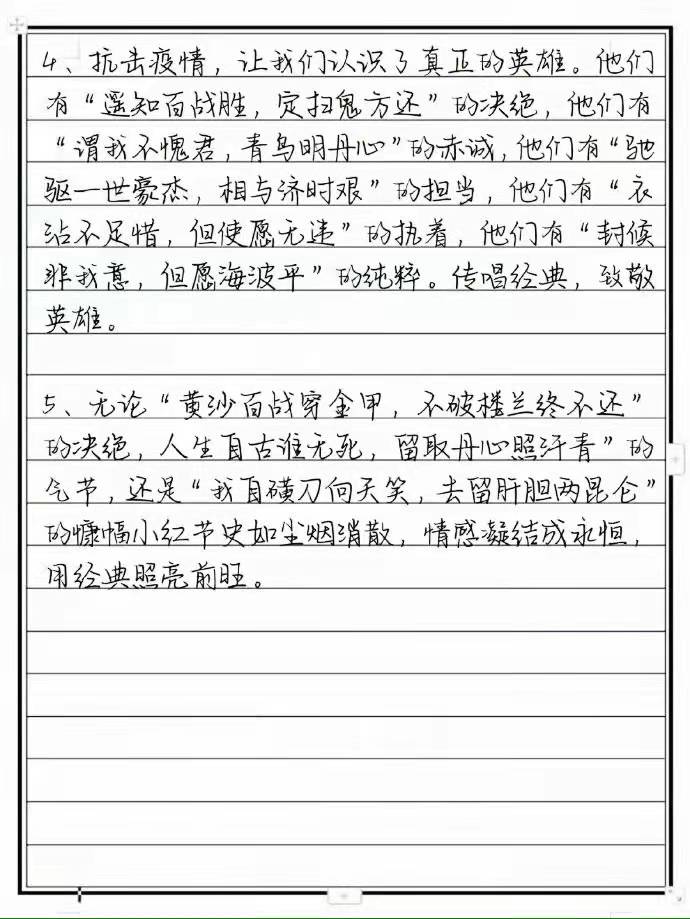 4、抗击疫情，让我们认识了真正的英雄。他们
有“遥知百战胜，定扫鬼方还”的决绝，他们有
“谓我不愧君，青鸟明丹心”的赤诚，他们有“驰
驱一世豪杰，相与济时艰”的担当，他们有“衣
沾不足惜，但使愿无违”的执着，他们有“封候
非我意，但愿海波平”的纯粹。传唱经典，致敬
英雄。
5、无论“黄沙百战穿金甲，不破楼兰终不还”
的决绝，人生自古谁无死，留取丹心照汗青”的
气节，还是“我自横刀向天笑，去留肝胆两昆仑”
的慷幅小红节史如尘烟消散，情感凝结成永恒，
用经典照亮前旺。